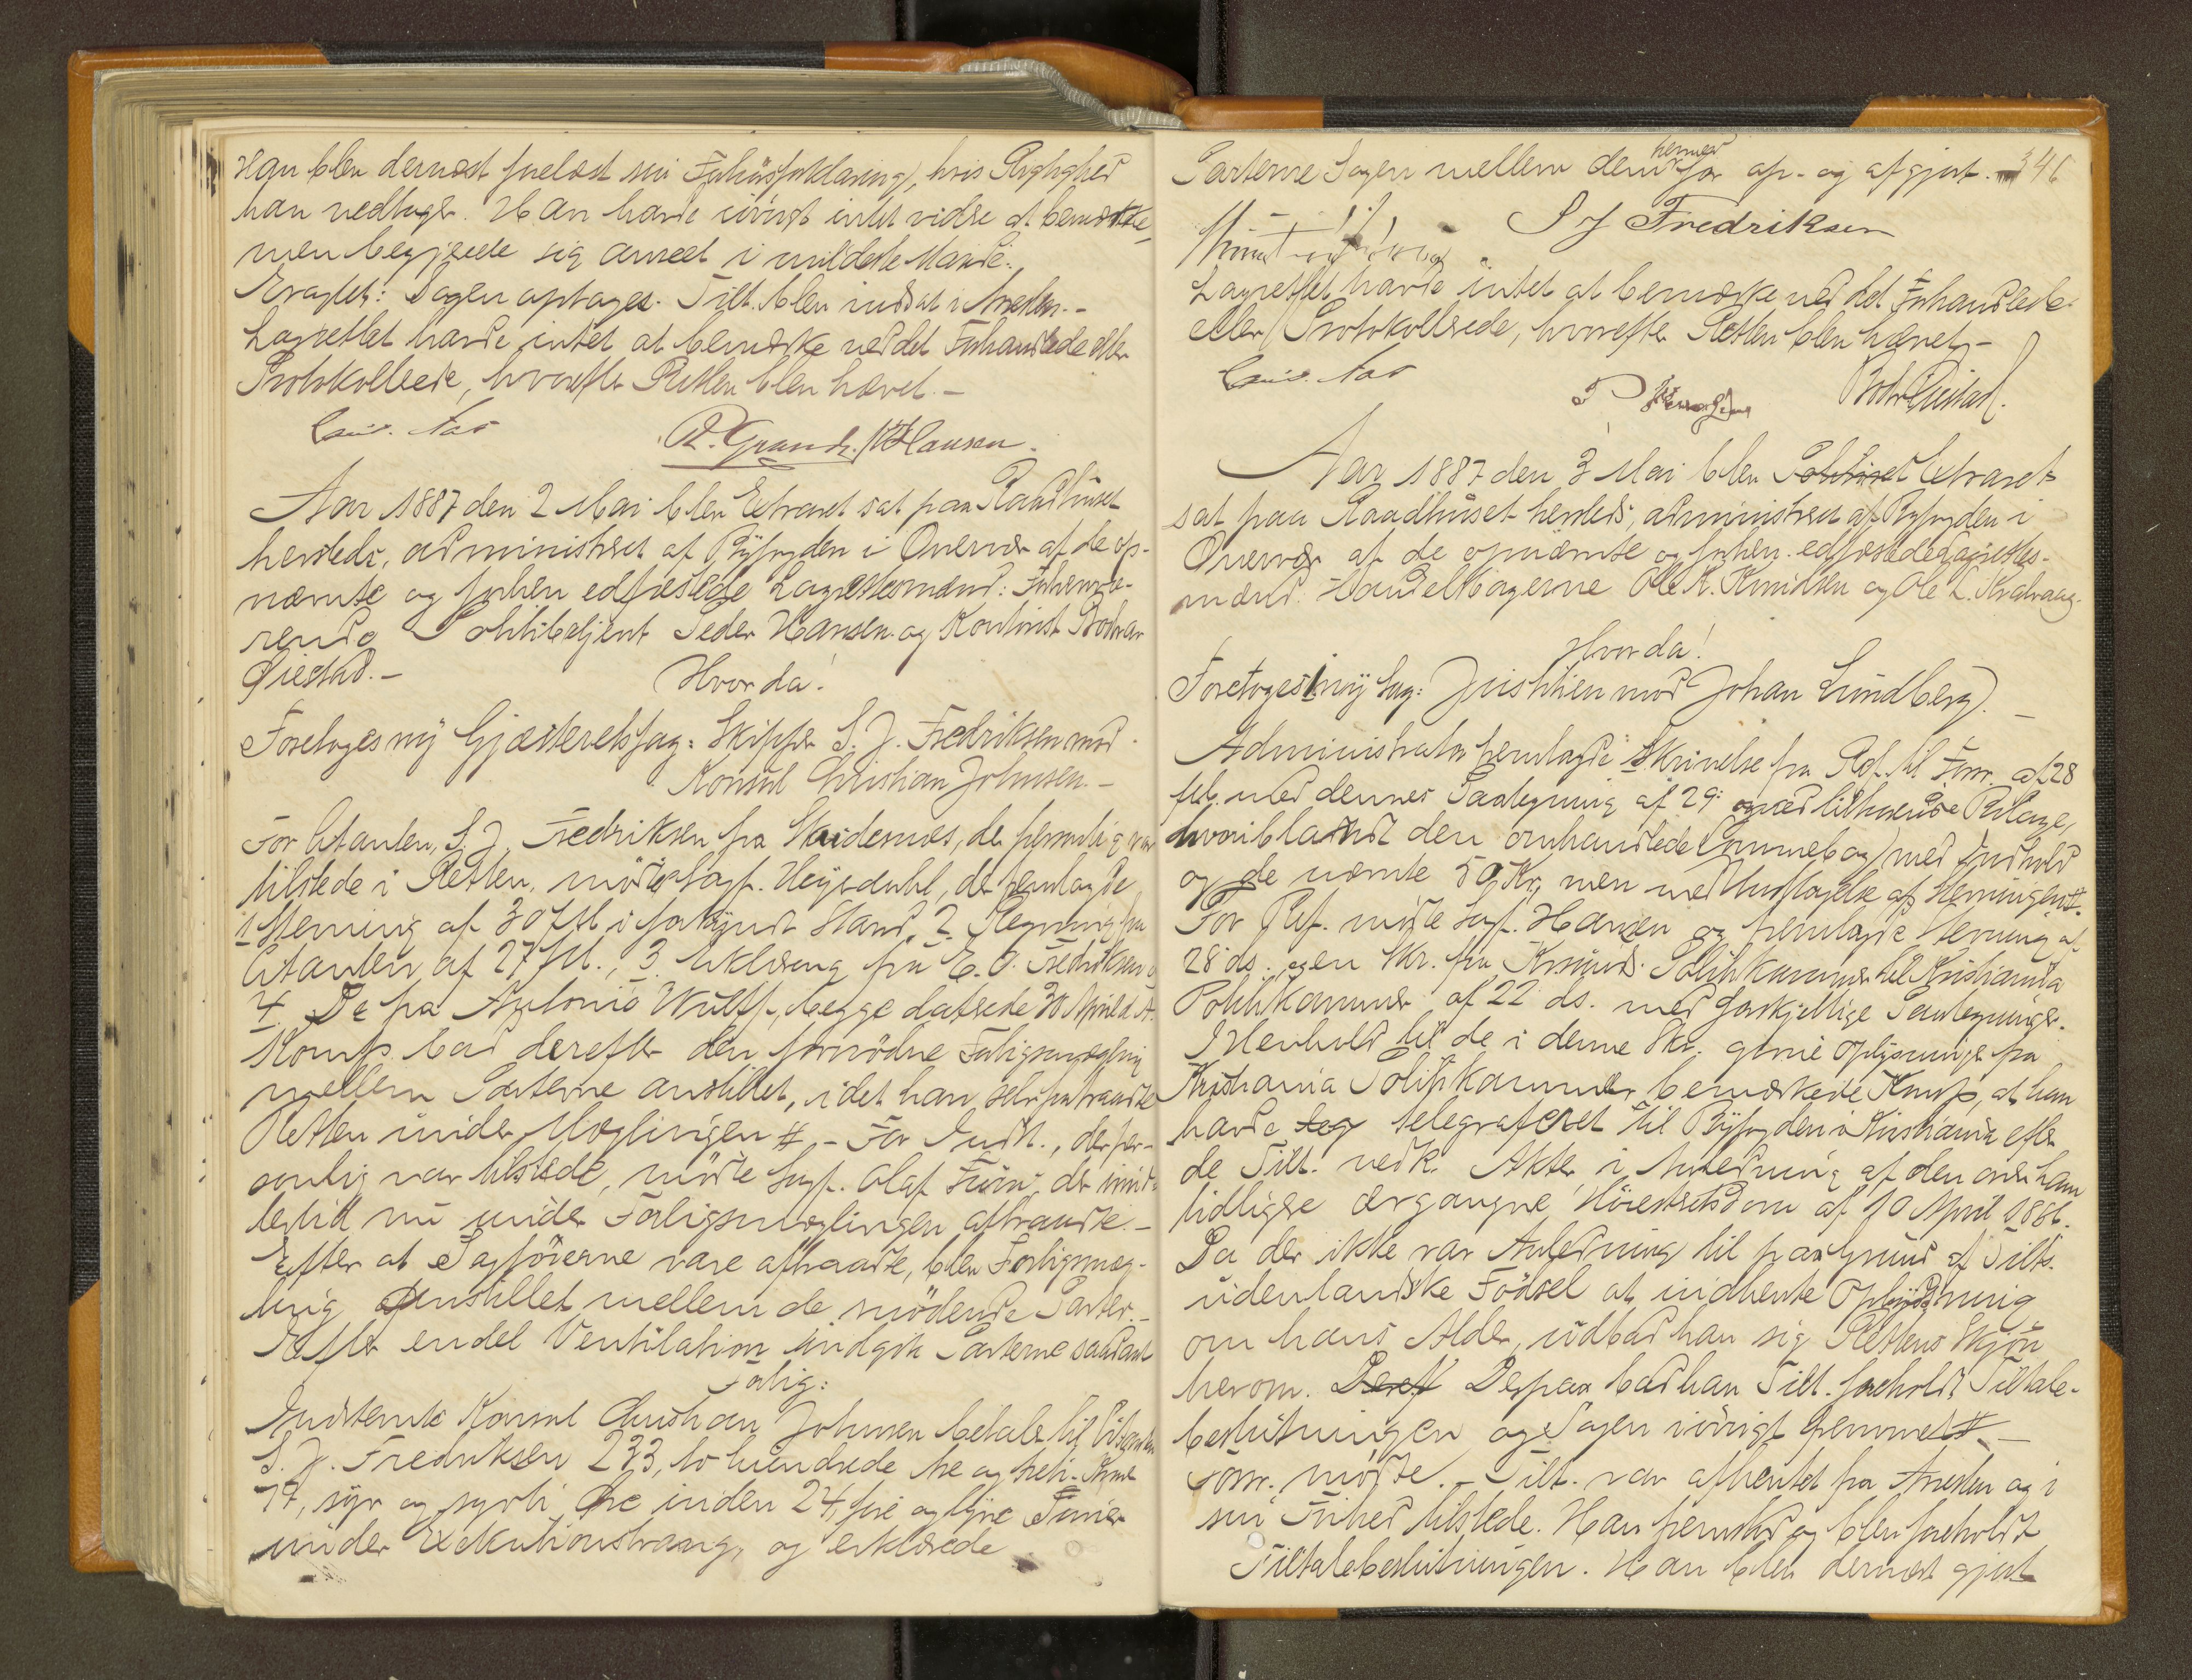 Han blev dernæst forelæst sin Forhørsforklaring, hvis Rigtighed
han vedtager. Han havde iøvrigt intet vidre at bemærke,
men begjærede sig anseet i mildeste Maade.
Eragtet: Sagen optages. Tilt. blev indsat i Aresten. -
Lagrettet havde intet at bemærke ved det Forhandlede eller
Protokollerede, hvorefter Retten blev hævet. -
P. Hansen.
Aar 1887 den 2 Mai blev Extraret sat paa Raadhuset
hersteds, administreret af Byfogden i Overvær af de op-
nævnte og forhen edfæstede Lagrettesmænd: Forhenvæ-
rende Politibetjent Peder Hansen og Kontorist Bodvar
Øiestad. -
Hvorda!
Foretoges ny Gjæsteretssag: Skipper S. J. Fredriksen mod
Konsul Christian Johnsen. -
For Citanten, S. J. Fredriksen fra Skudesnæs, der personlig var
tilstede i Retten, mødte Sagf. Heyerdahl, der fremlagde
1 Stevning af 30 f.M. i forkyndt Stand, 2. Regning fra
Citanten af 27 f.M., 3. Erklæring fra E. O. Fredriksen
4. De fra Antonio Wulff, begge daterede 30 April d.A.
Komp. bad derefter den fornødne Forligsmægling
mellem Parterne anstillet, idet han selv fratraadte
Retten under Mæglingen #. - For Indst., der per-
sonlig var tilstede, mødte Sagf. Olaf der imid-
lertid nu under Forligsmæglingen aftraadte. -
Efter at Sagførerne vare aftraadte, blev Forligsmæg-
ling anstillet mellem de mødende Parter. -
Efter endel Ventilation indgik Parterne saadant
Forlig:
Indstevnte Konsul Christian Johnsen betaler til Citanten
S. J. Fredriksen 233, to hundrede tre og treti Kroner
77, syv og sytti Øre inden 24, fire og tyve Timer
under Exekutionstvang, og erklærede
Parterne Sagen mellem dem hermed for op- og afgjort. - 346
S J Fredriksen
Lagrettet havde intet at bemærke ved det Forhandlede
eller Protokollerede, hvorefter Retten blev hævet. -
P Hansen Bodv Øiestad.
Aar 1887 den 3 Mai blev Extraret
sat paa Raadhuset hersteds, administreret af Byfogden i
Overvær af de opnævnte og forhen edfæstede Lagrettes-
mænd: Handelsborgerne Ole K. Knudsen og Ole L.
Hvorda!
Foretoges ny Sag: Justitien mod Johan Lundberg. -
Administrator fremlagde Skrivelse fra Ref. til Forsv. af 28
f.M. med dennes Paategning af 29: med tilhørende Bilage,
hvoriblandt den omhandlede Lommebog med Indhold
og de nævnte 50 Kr, men med Undtagelse af Stevningen #.
For Ref. mødte Sagf. Hansen og fremlagde Stevning af
28 ds., og en Skr. fra Krsunds Politikammer til Kristiania
Politikammer af 22 ds. med forskjellige Paategninger.
I Henhold til de i denne Skr. givne Oplysninger fra
Kristiania Politikammer bemærkede Komp., at han
havde telegraferet til Byfogden i Kristiania efter
de Tilt. vedk. Akter i Anledning af den over ham
tidligere ergangne Høiesteretsdom af 10 April 1886.
Da der ikke var Anledning til paa Grund af Tilts.
udenlandske Fødsel at indhente Oplysning
om hans Alder, udbad han sig Rettens Skjøn
herom. Derpaa bad han Tilt. foreholdt Tiltale-
beslutningen og Sagen iøvrigt fremmet #. -
Forsv. mødte. - Tilt. var afhentet fra Aresten og i
sin Frihed tilstede. Han fremstod og blev foreholdt
Tiltalebeslutningen. Han blev dernæst gjort